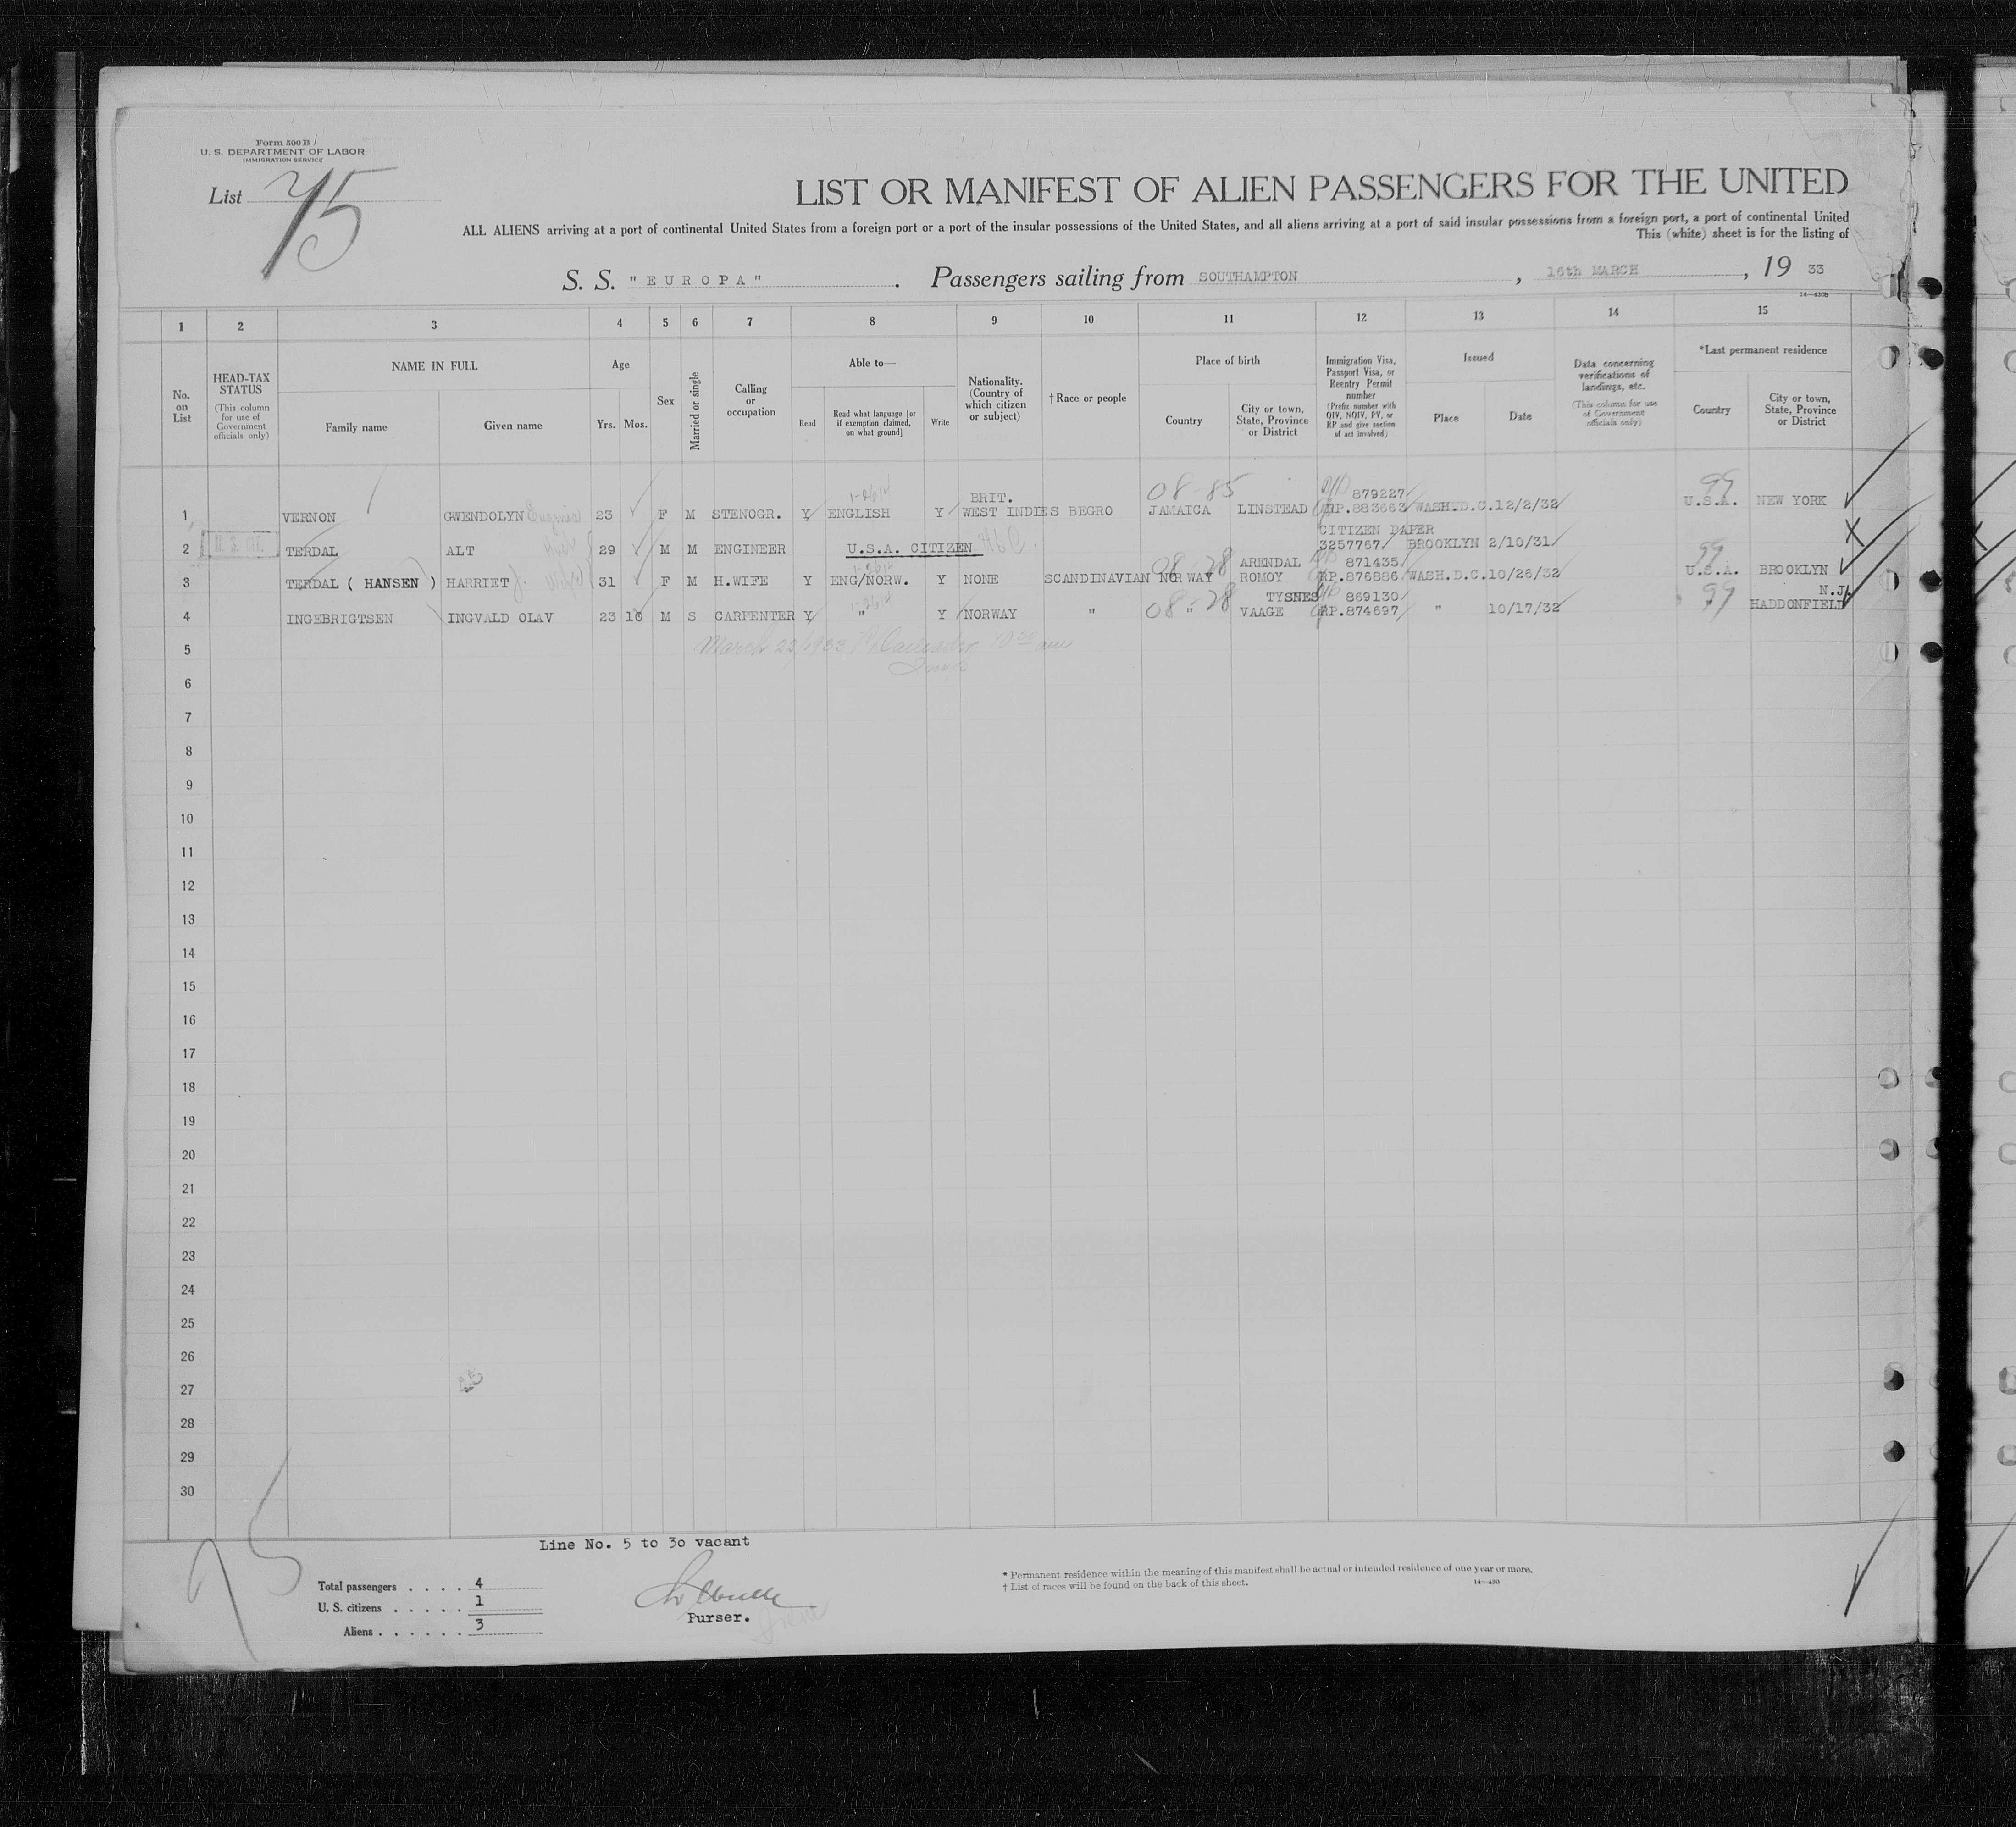 Form 500 B
U. S. DEPARTMENT OF LABOR
IMMIGRATION SERVICE
List 75
LIST OR MANIFEST OF ALIEN PASSENGERS FOR THE UNITED
ALL ALIENS arriving at a port of continental United States from a foreign port or a port of the insular possessions of the United States, and all aliens arriving at a port of said insular possessions from a foreign port, a port of continental United
This (white) sheet is for the listing of
S. S. "EUROPA". Passengers sailing from SOUTHAMPTON, 16th MARCH, 19 33
14—430b
1 2 3 4 5 6 7 8 9 10 11 12 13 14 15
No. on List
HEAD-TAX STATUS (This column for use of Government officials only)
NAME IN FULL
Family name Given name
Age
Yrs. Mos.
Sex
Married or single
Calling or occupation
Able to—
Read Read what language [or if exemption claimed, on what ground] Write
Nationality. (Country of which citizen or subject)
†Race or people
Place of birth
Country City or town, State, Province or District
Immigration Visa, Passport Visa, or Reentry Permit number (Prefix number with QIV, NQIV, PV, or RP and give section of act involved)
Issued
Place Date
Data concerning verifications of landings, etc. (This column for use of Government officials only)
*Last permanent residence
Country City or town, State, Province or District
BRIT. 08-85 879227 99
1 VERNON GWENDOLYN 23 F M STENOGR. Y ENGLISH Y WEST INDIES BEGRO JAMAICA LINSTEAD RP.883663 WASH.D.C. 12/2/32 U.S.A. NEW YORK
CITIZEN PAPER
2 TERDAL ALT 29 M M ENGINEER U.S.A. CITIZEN 3257767 BROOKLYN 2/10/31
08-28 ARENDAL 871435 99
3 TERDAL ( HANSEN ) HARRIET 31 F M H.WIFE Y ENG/NORW. Y NONE SCANDINAVIAN NORWAY ROMOY RP.876886 WASH.D.C. 10/26/32 U.S.A. BROOKLYN
TYSNES 869130 N.J.
4 INGEBRIGTSEN INGVALD OLAV 23 10 M S CARPENTER Y " Y NORWAY " 08-28 " VAAGE RP.874697 " 10/17/32 " 99 HADDONFIELD
5
6
7
8
9
10
11
12
13
14
15
16
17
18
19
20
21
22
23
24
25
26
27
28
29
30
Line No. 5 to 30 vacant
Total passengers . . . . 4
U. S. citizens . . . . . 1
Aliens . . . . . . 3
Purser.
* Permanent residence within the meaning of this manifest shall be actual or intended residence of one year or more.
† List of races will be found on the back of this sheet.
14—430